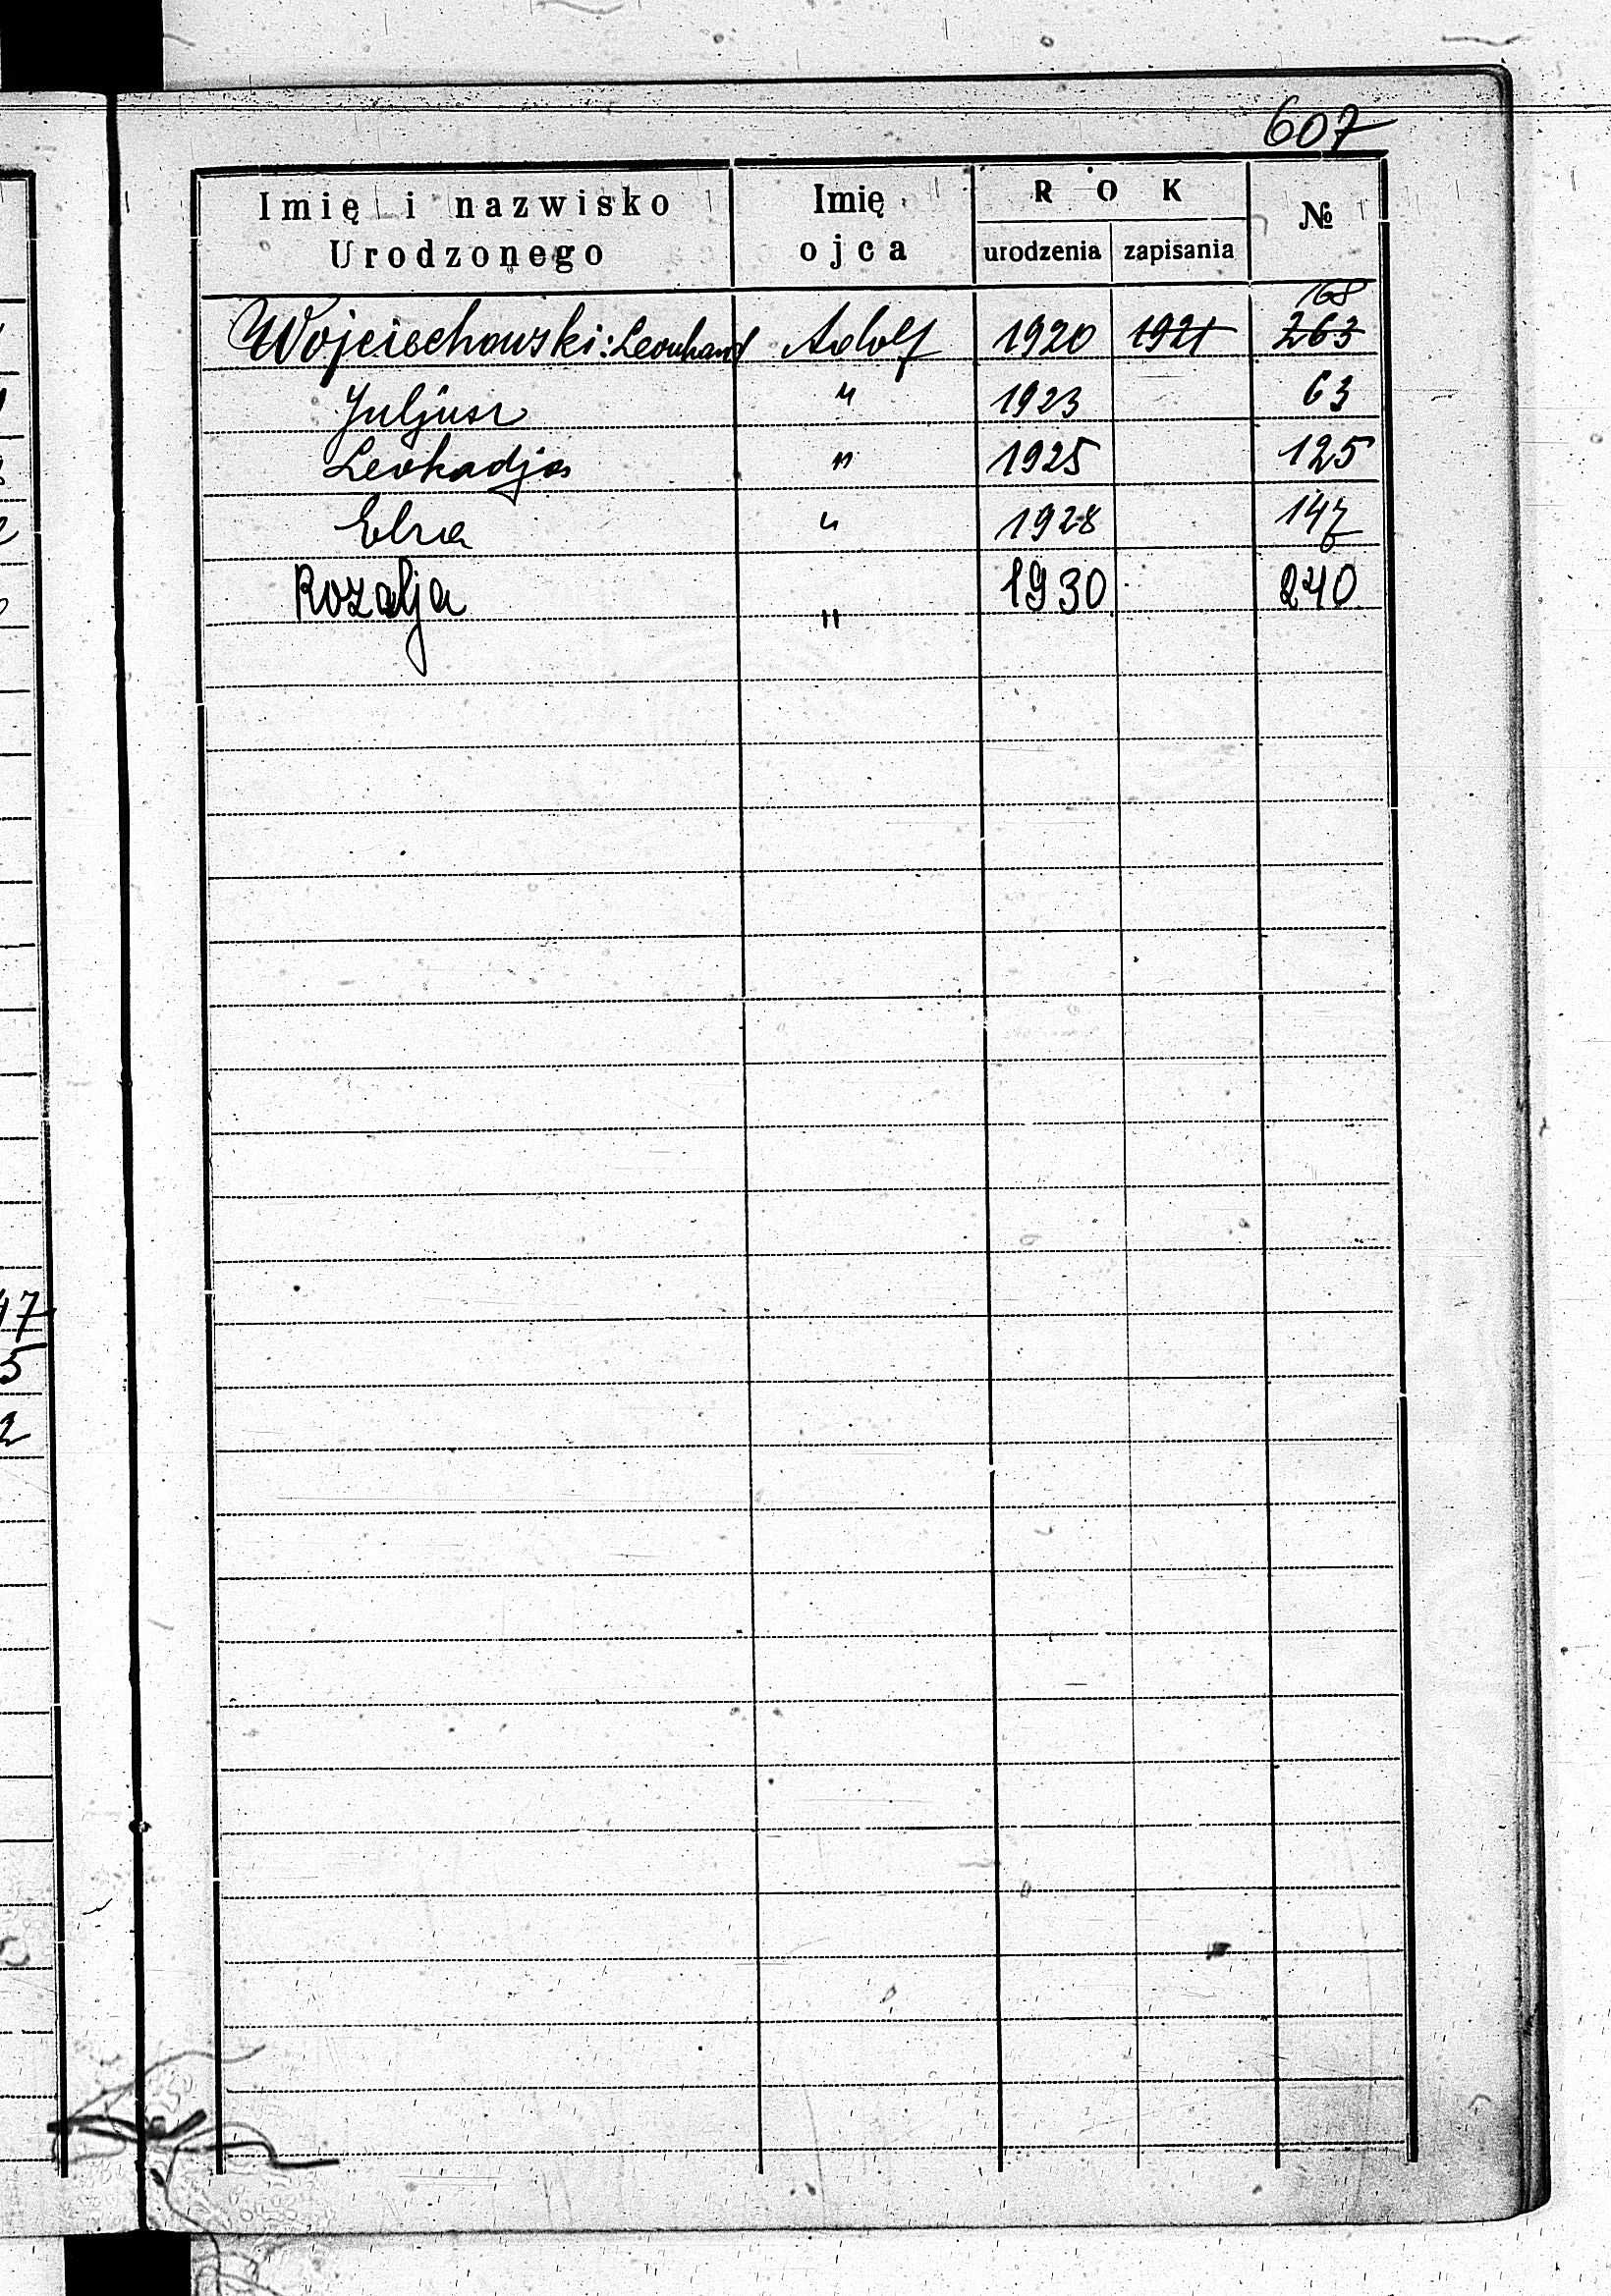 607
Imię i nazwisko Urodzonego Imię ojca ROK urodzenia zapisania №
168
Wojciechowski: Leonhard Adolf 1920 1921 263
Juljusz " 1923 63
Leokadja " 1925 125
Elza " 1928 147
Rozalja " 1930 240
47
5
2